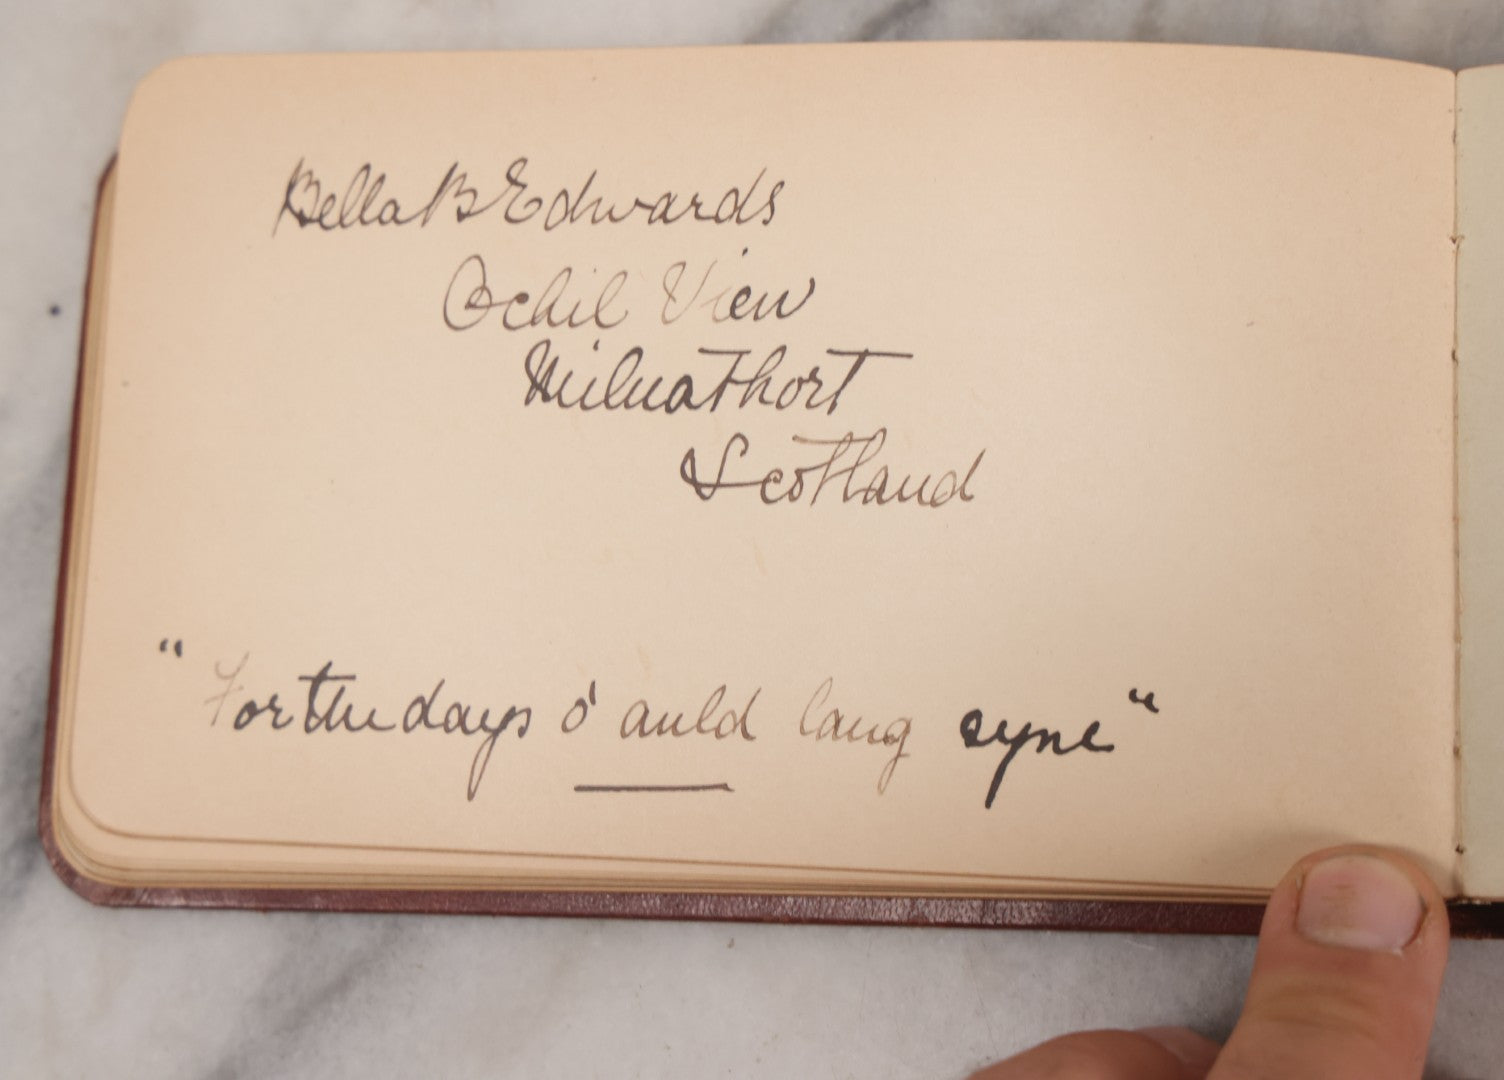 Bella B Edwards
Ochil View
Milnathort
Scotland
"For the days o' auld lang syne"